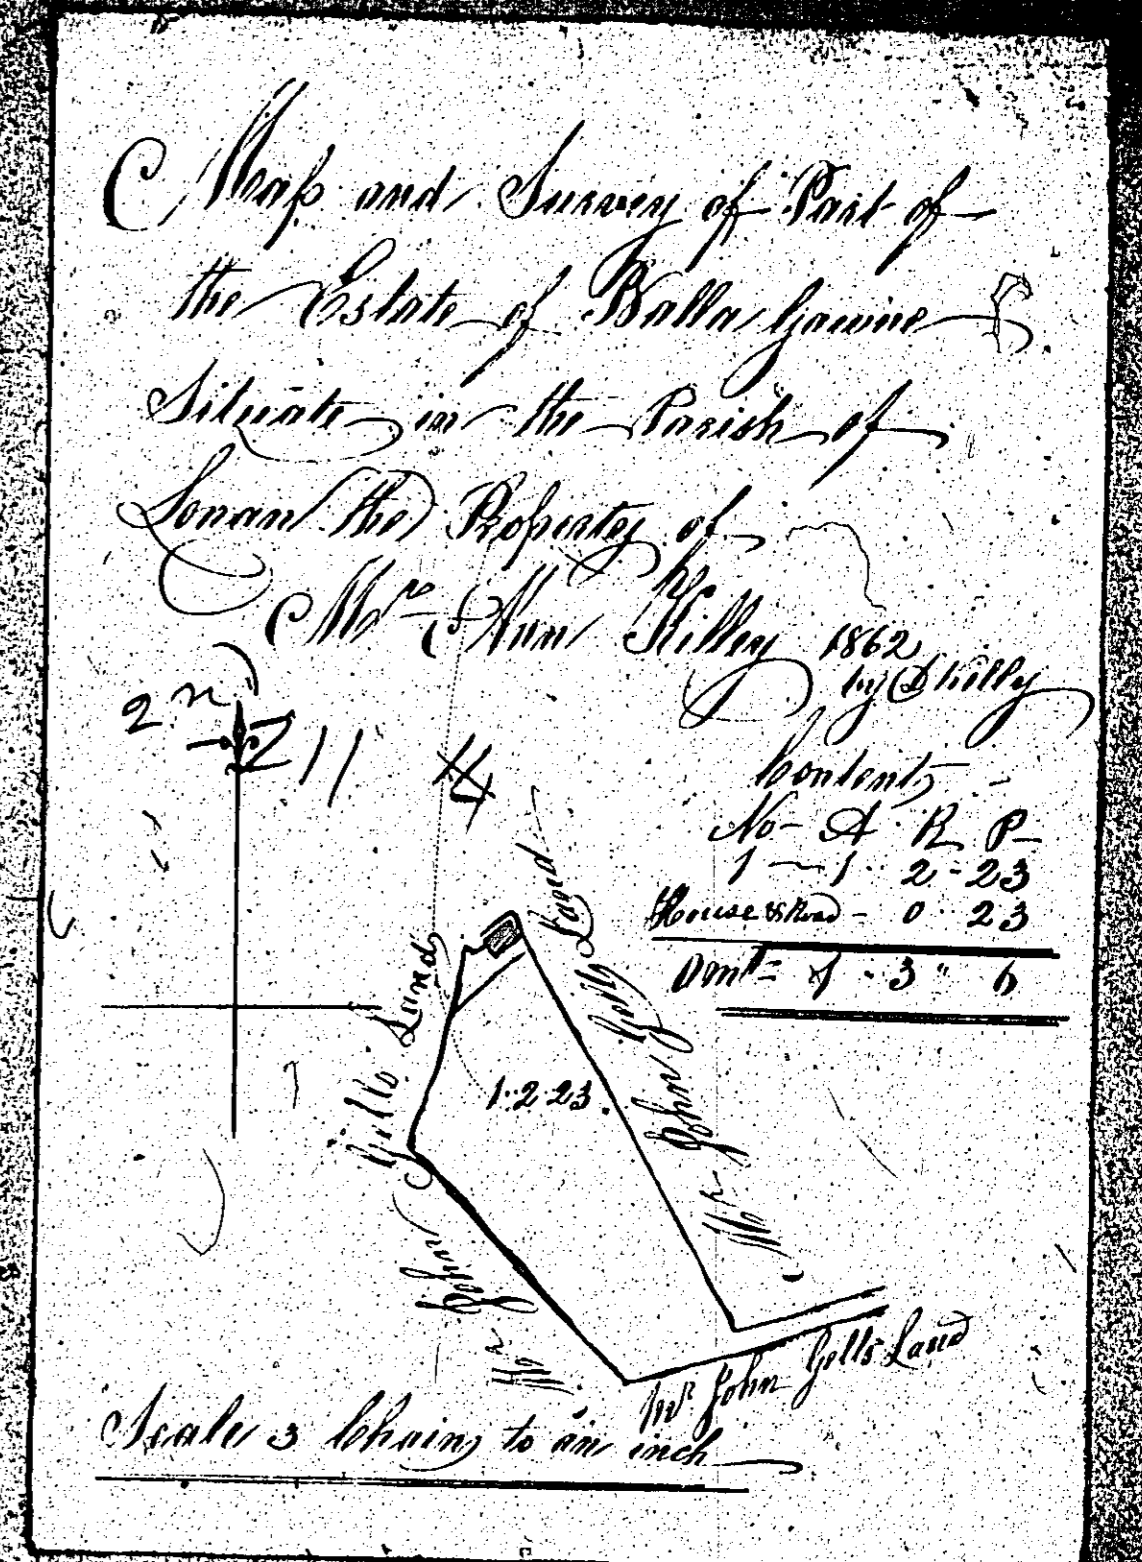 Map and Survey of Part of
the Estate of Balla Gawne
Situate in the Parish of
Lonan the Property of
Mrs Ann Killey 1862
by D Killey
Contents
No A R P
1 - 1 .. 2 - 23
House & Road - 0 .. 23
Amt = 1 .. 3 " 6
Mr John Gells Land
Mr John Gells Land
1..2.23.
Mr John Gells Land
Scale 3 Chains to an inch